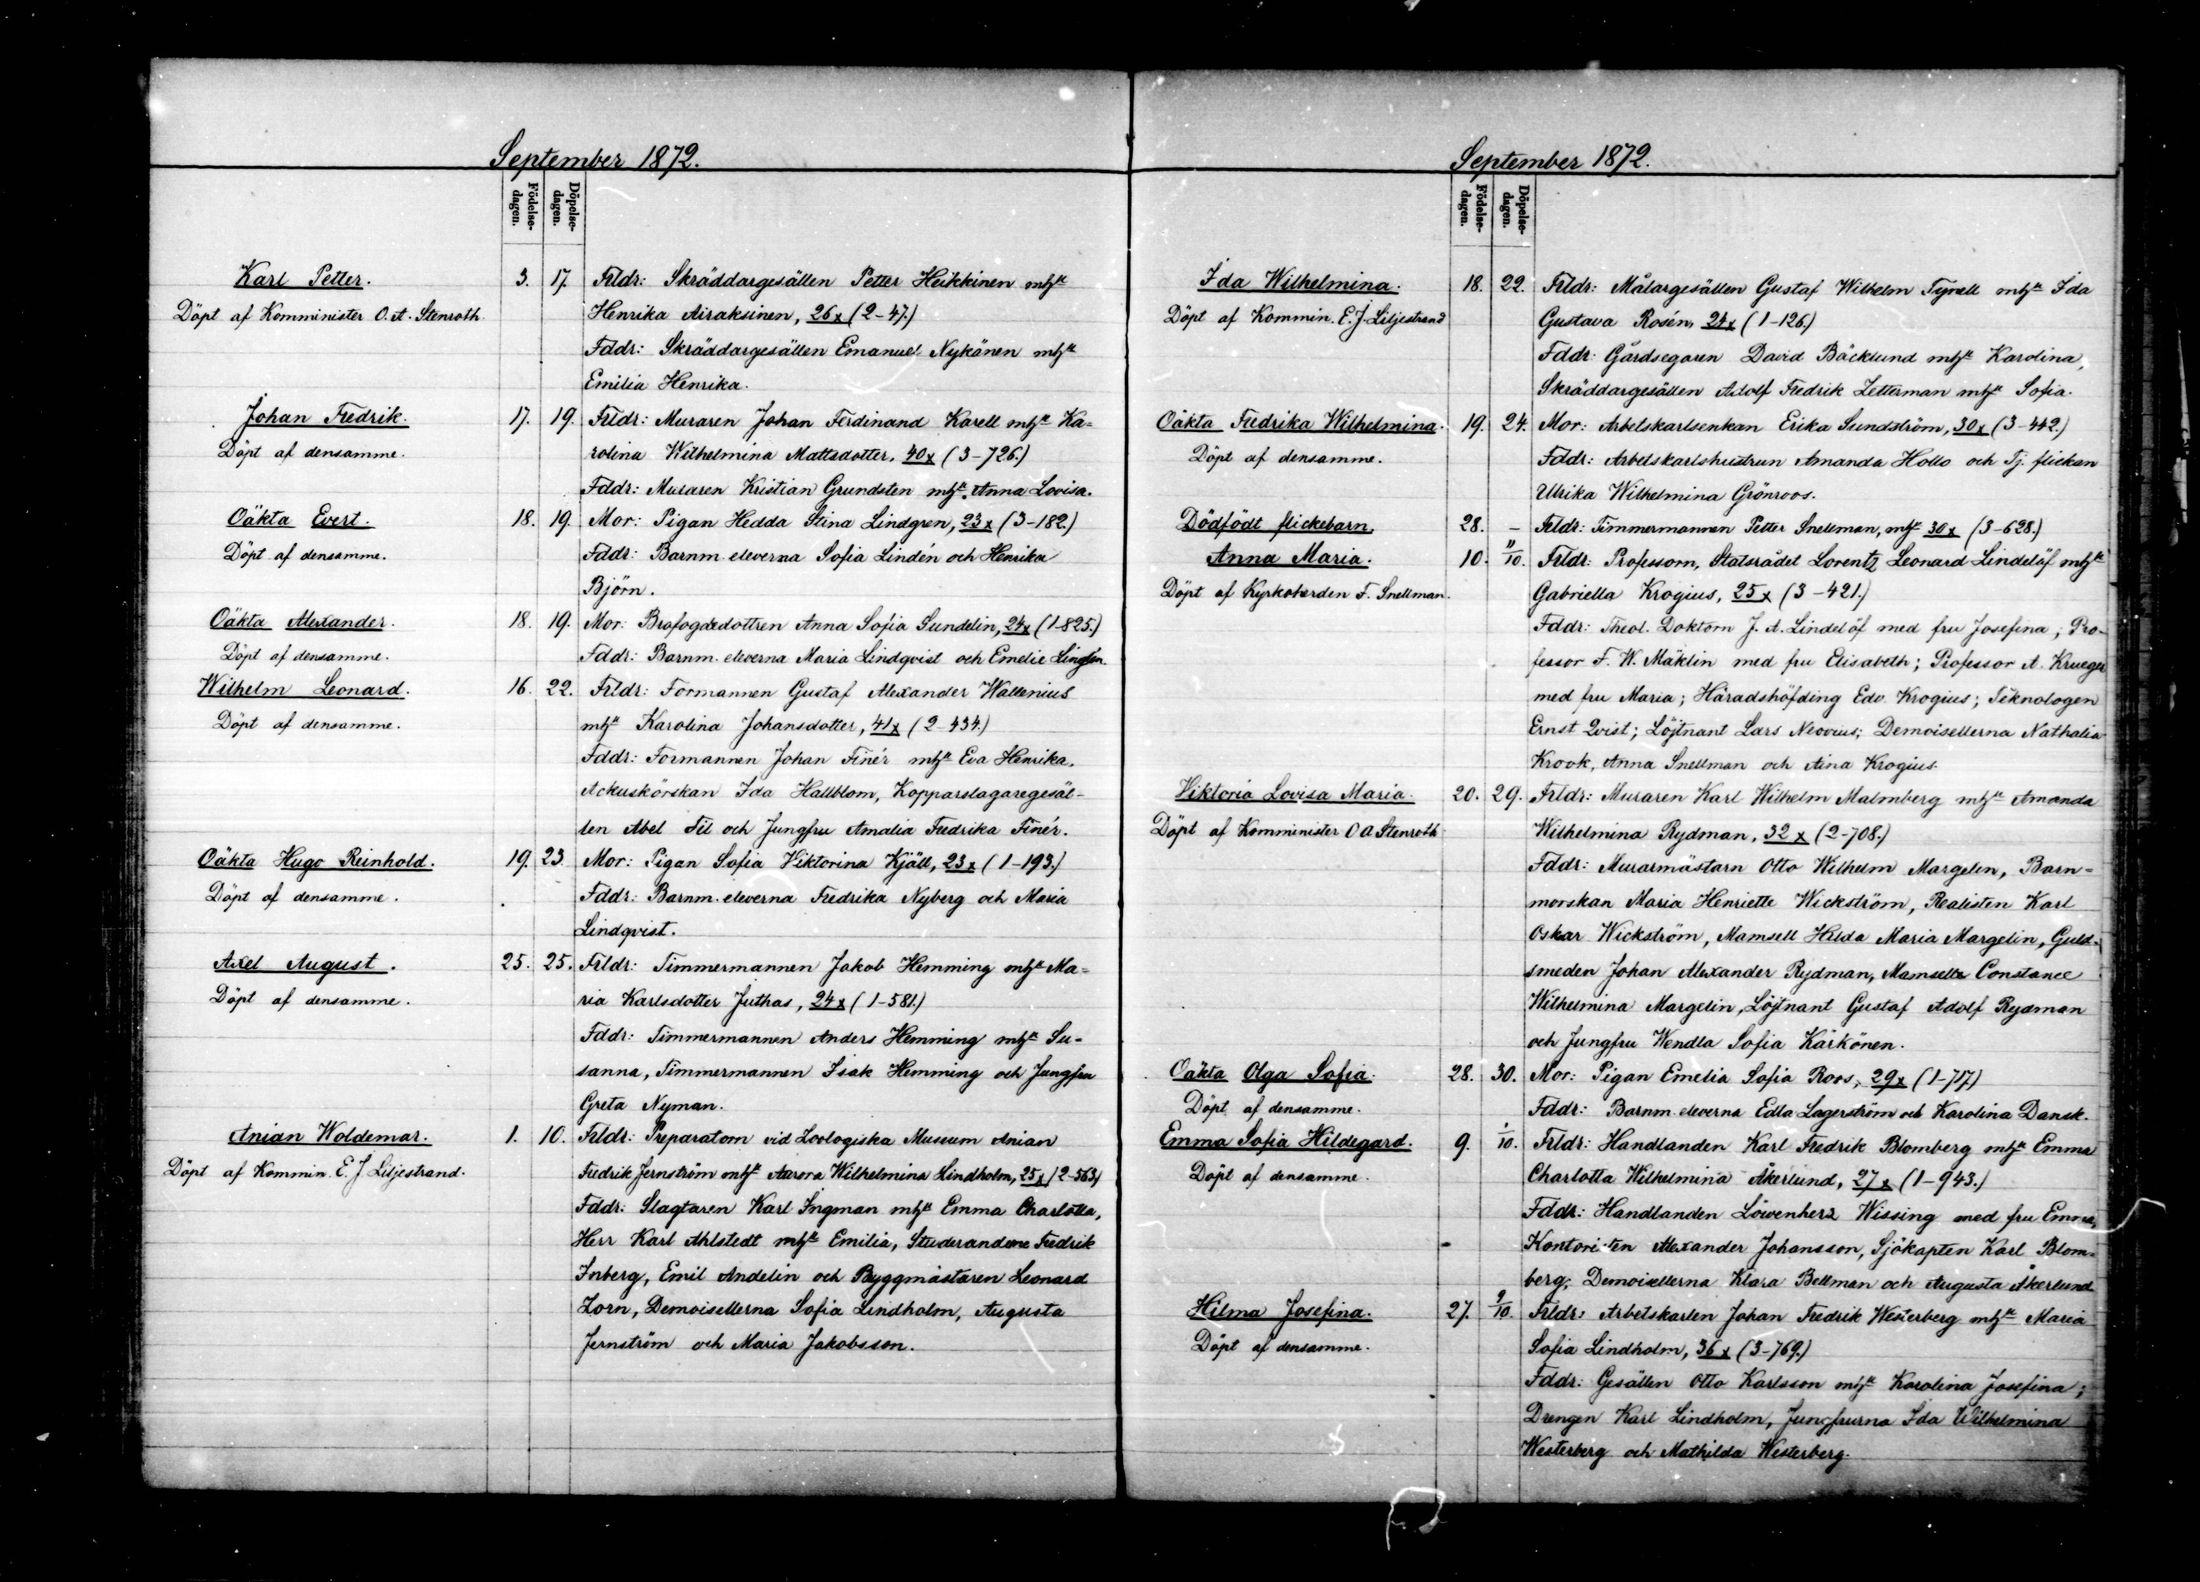 September 1872.
Födelse-
dagen.
Döpelse-
dagen.
Karl Petter. 3. 17. Frldr: Skräddargesällen Petter Heikkinen mhst
Döpt af Komminister O. A. Stenroth. Henrika Airaksinen, 26x (2-47.)
Fddr: Skräddargesällen Emanuel Nykänen mhst
Emilia Henrika.
Johan Fredrik. 17. 19. Frldr: Muraren Johan Ferdinand Karell mhst Ka=
Döpt af densamme. rolina Wilhelmina Mattsdotter, 40x (3-726.)
Fddr: Muraren Kristian Grundsten mhst Anna Lovisa.
Oäkta Evert. 18. 19. Mor: Pigan Hedda Stina Lindgren, 23x (3-182.)
Döpt af densamme. Fddr: Barnm. eleverna Sofia Lindén och Henrika
Björn.
Oäkta Alexander. 18. 19. Mor: Brofogdedottren Anna Sofia Sundelin, 24x (1-825.)
Döpt af densamme. Fddr: Barnm. eleverna Maria Lindqvist och Emelie
Wilhelm Leonard. 16. 22. Frldr: Formannen Gustaf Alexander Wallenius
Döpt af densamme. mhst Karolina Johansdotter, 41x (2-434.)
Fddr: Formannen Johan Finér mhst Eva Henrika,
Ackuskörskan Ida Hallblom, Kopparslagaregesäl-
len Abel Fil och Jungfru Amalia Fredrika Finér.
Oäkta Hugo Reinhold. 19. 23. Mor: Pigan Sofia Viktorina Kjäll, 23x (1-193.)
Döpt af densamme. Fddr: Barnm. eleverna Fredrika Nyberg och Maria
Lindqvist.
Axel August. 25. 25. Frldr: Timmermannen Jakob Hemming mhst Ma=
Döpt af densamme. ria Karlsdotter Juthas, 24x (1-581.)
Fddr: Timmermannen Anders Hemming mhst Su-
sanna, Timmermannen Isak Hemming och Jungfru
Greta Nyman.
Anian Woldemar. 1. 10. Frldr: Preparatorn vid Zoologiska Museum Anian
Döpt af Kommin. E. J. Liljestrand. Fredrik Jernström mhst Aurora Wilhelmina Lindholm, 25x (2-563)
Fddr: Slagtaren Karl Ingman mhst Emma Charlotta,
Herr Karl Ahlstedt mhst Emilia, Studerandene Fredrik
Inberg, Emil Andelin och Byggmästaren Leonard
Zorn, Demoisellerna Sofia Lindholm, Augusta
Jernström och Maria Jakobsson.
September 1872.
Födelse-
dagen.
Döpelse-
dagen.
Ida Wilhelmina. 18. 22. Frldr: Målargesällen Gustaf Wilhelm Tyrell mhst Ida
Döpt af Kommin. E. J. Liljestrand Gustava Rosén, 24x (1-126.)
Fddr: Gårdsegaren David Bäcklund mhst Karolina,
Skräddargesällen Adolf Fredrik Zetterman mhst Sofia.
Oäkta Fredrika Wilhelmina. 19. 24. Mor: Arbetskarlsenkan Erika Sundström, 30x (3-442.)
Döpt af densamme. Fddr: Arbetskarlshustrun Amanda Hollo och Tj. flickan
Ulrika Wilhelmina Grönroos.
Dödfödt flickebarn. 28. – Frldr: Timmermannen Petter Snellman, mht 30x (3-628.)
Anna Maria. 10. 11/10. Frldr: Professorn, Statsrådet Lorentz Leonard Lindelöf mhst
Döpt af Kyrkoherden F. Snellman. Gabriella Krogius, 25x (3-421.)
Fddr: Theol. Doktorn J. A. Lindelöf med fru Josefina; Pro-
fessor F. W. Mäklin med fru Elisabeth; Professor A. Krueger
med fru Maria; Häradshöfding Edv. Krogius; Teknologen
Ernst Qvist; Löjtnant Lars Neovius; Demoisellerna Nathalia
Krook, Anna Snellman och Aina Krogius.
Viktoria Lovisa Maria. 20. 29. Frldr: Muraren Karl Wilhelm Malmberg mhst Amanda
Döpt af Komminister O A Stenroth Wilhelmina Rydman, 32x (2-708.)
Fddr: Murarmästarn Otto Wilhelm Margelin, Barn-
morskan Maria Henriette Wickström, Realisten Karl
Oskar Wickström, Mamsell Hilda Maria Margelin, Guld-
smeden Johan Alexander Rydman, Mamsell Constance
Wilhelmina Margelin, Löjtnant Gustaf Adolf Rydman
och Jungfru Wendla Sofia Kärkönen.
Oäkta Olga Sofia. 28. 30. Mor: Pigan Emelia Sofia Roos, 29x (1-717)
Döpt af densamme. Fddr: Barnm. eleverna Edla Lagerström och Karolina Dansk.
Emma Sofia Hildegard. 9. 1/10. Frldr: Handlanden Karl Fredrik Blomberg mhst Emma
Döpt af densamme. Charlotta Wilhelmina Åkerlund, 27x (1-943.)
Fddr: Handlanden Löwenherz Wissing med fru Emma,
Kontoristen Alexander Johansson, Sjökapten Karl Blom-
berg; Demoisellerna Klara Bellman och Augusta Åkerlund
Hilma Josefina. 27. 2/10. Frldr: Arbetskarlen Johan Fredrik Westerberg mhst Maria
Döpt af densamme. Sofia Lindholm, 36x (3-769.)
Fddr: Gesällen Otto Karlsson mhst Karolina Josefina;
Drengen Karl Lindholm, Jungfrurna Ida Wilhelmina
Westerberg och Mathilda Westerberg.